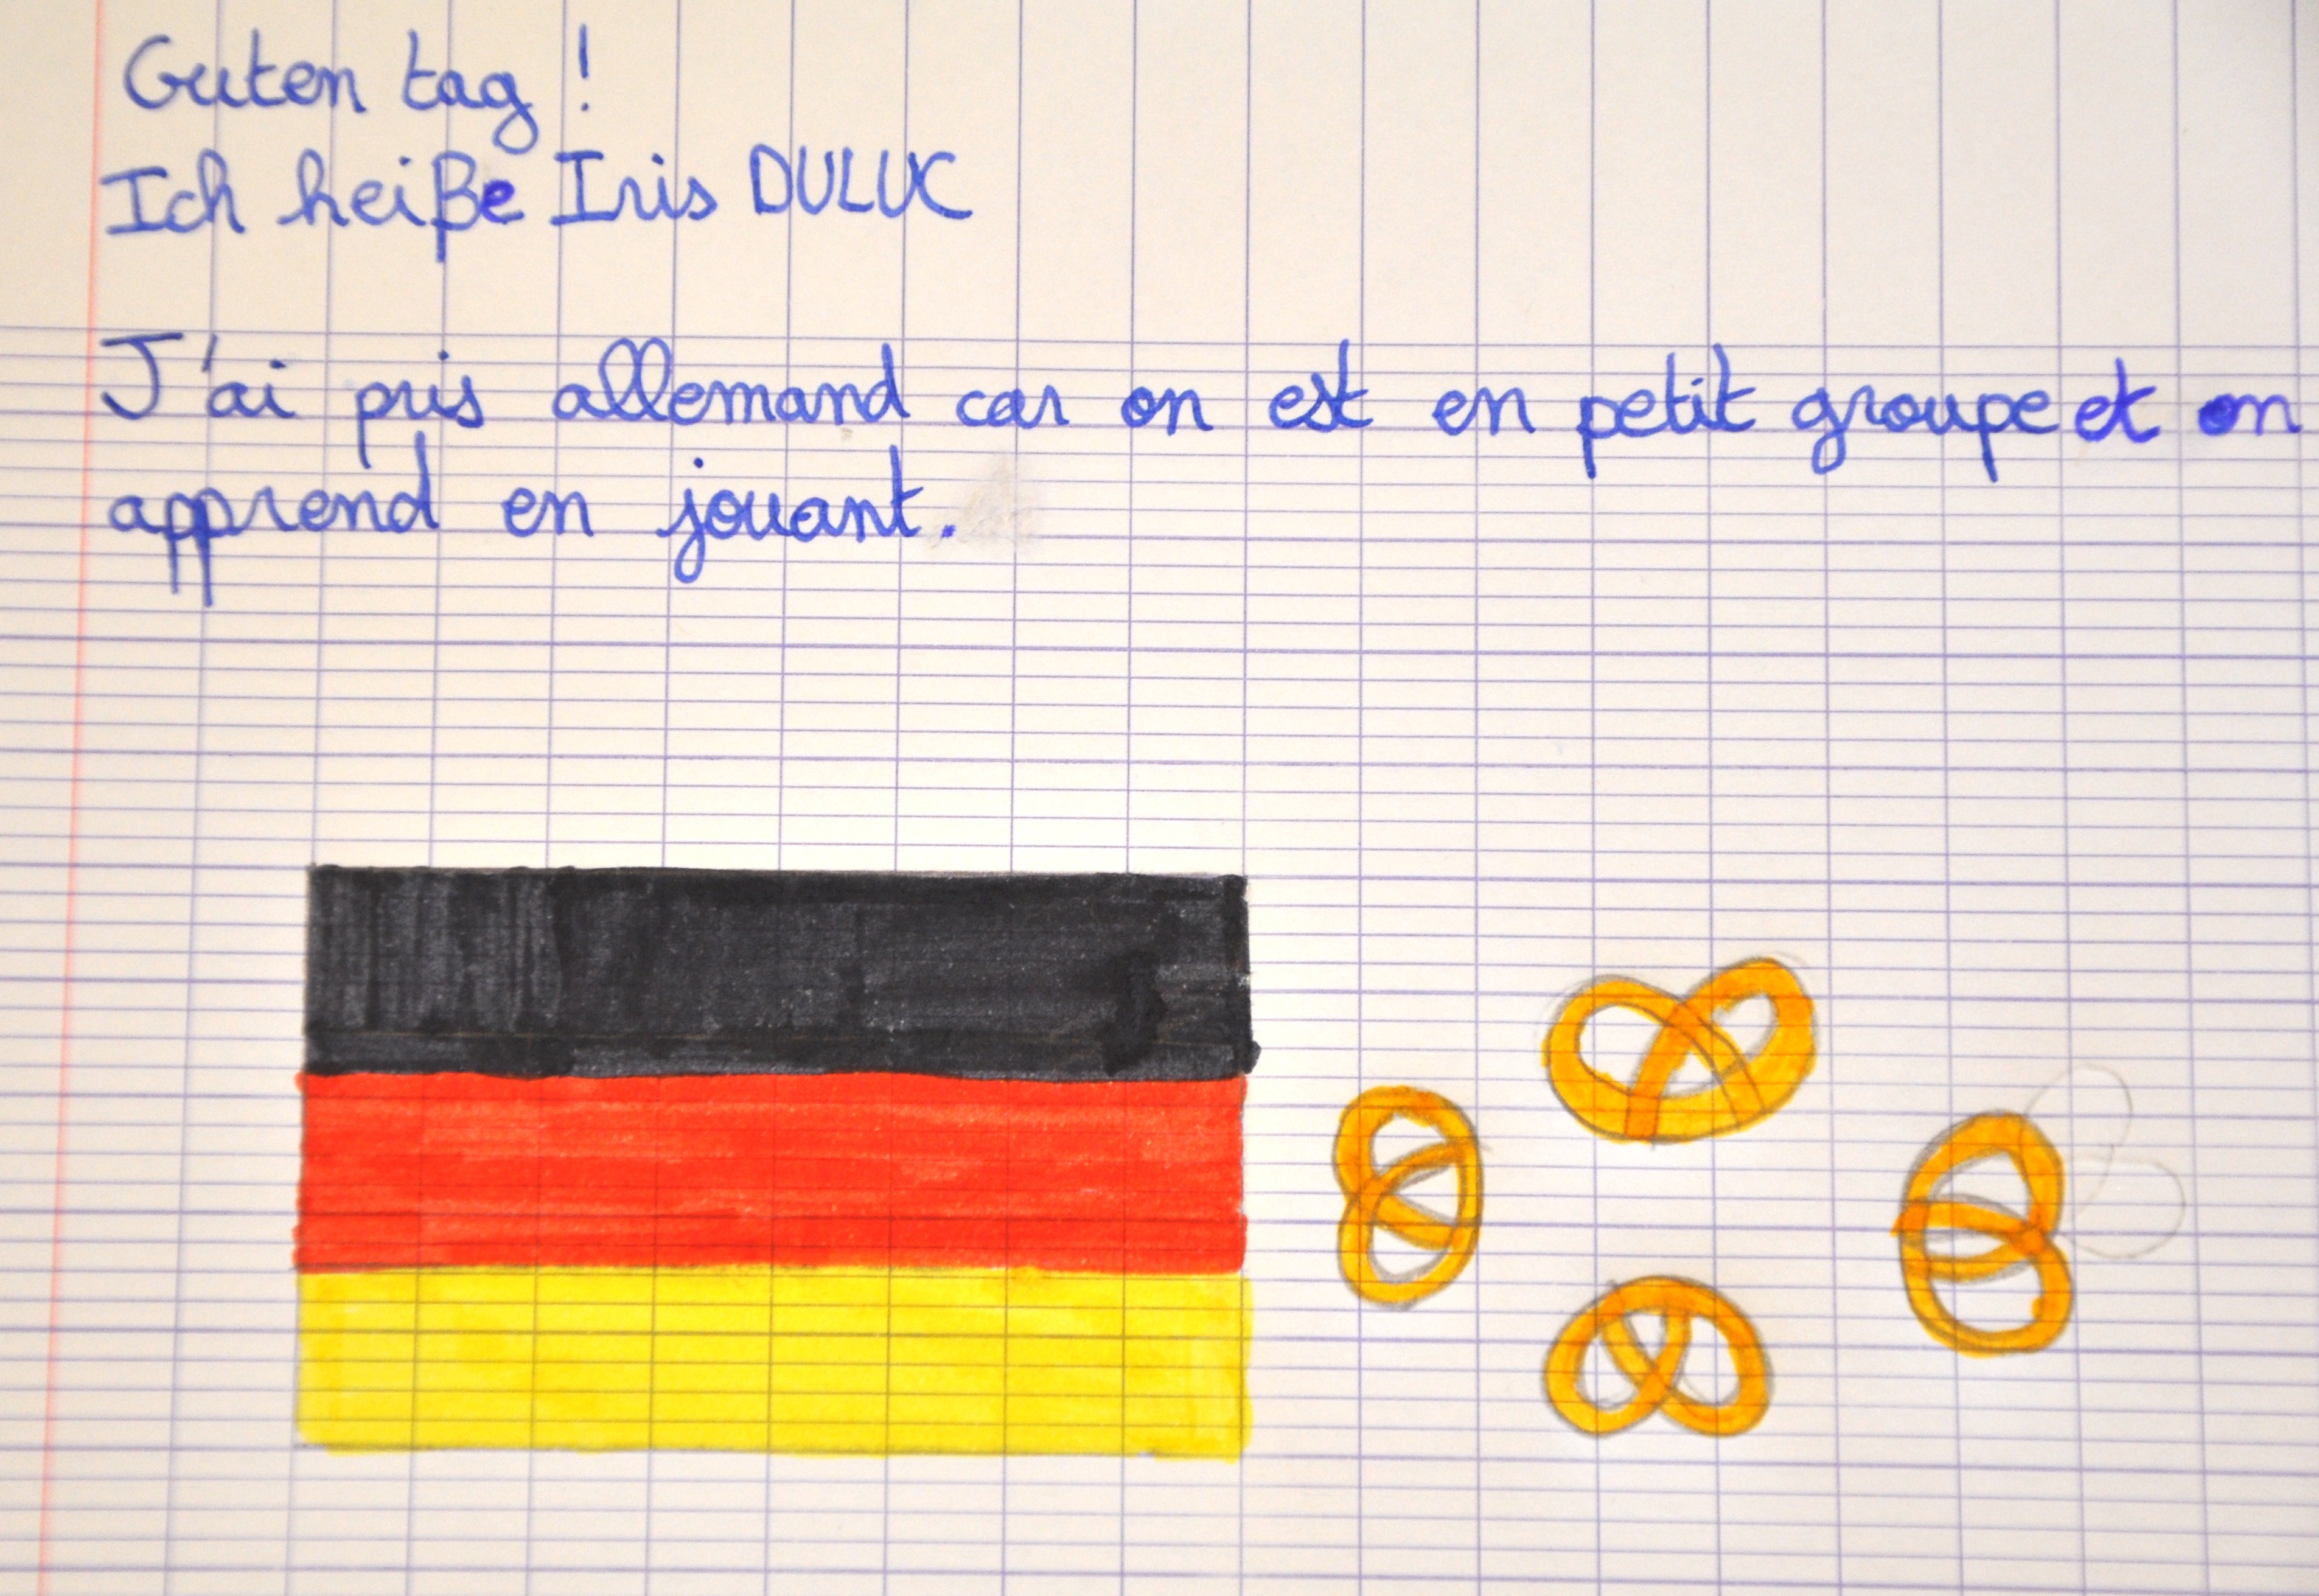 Guten tag !
Ich heiße Iris DULUC
J'ai pris allemand car on est en petit groupe et on
apprend en jouant.